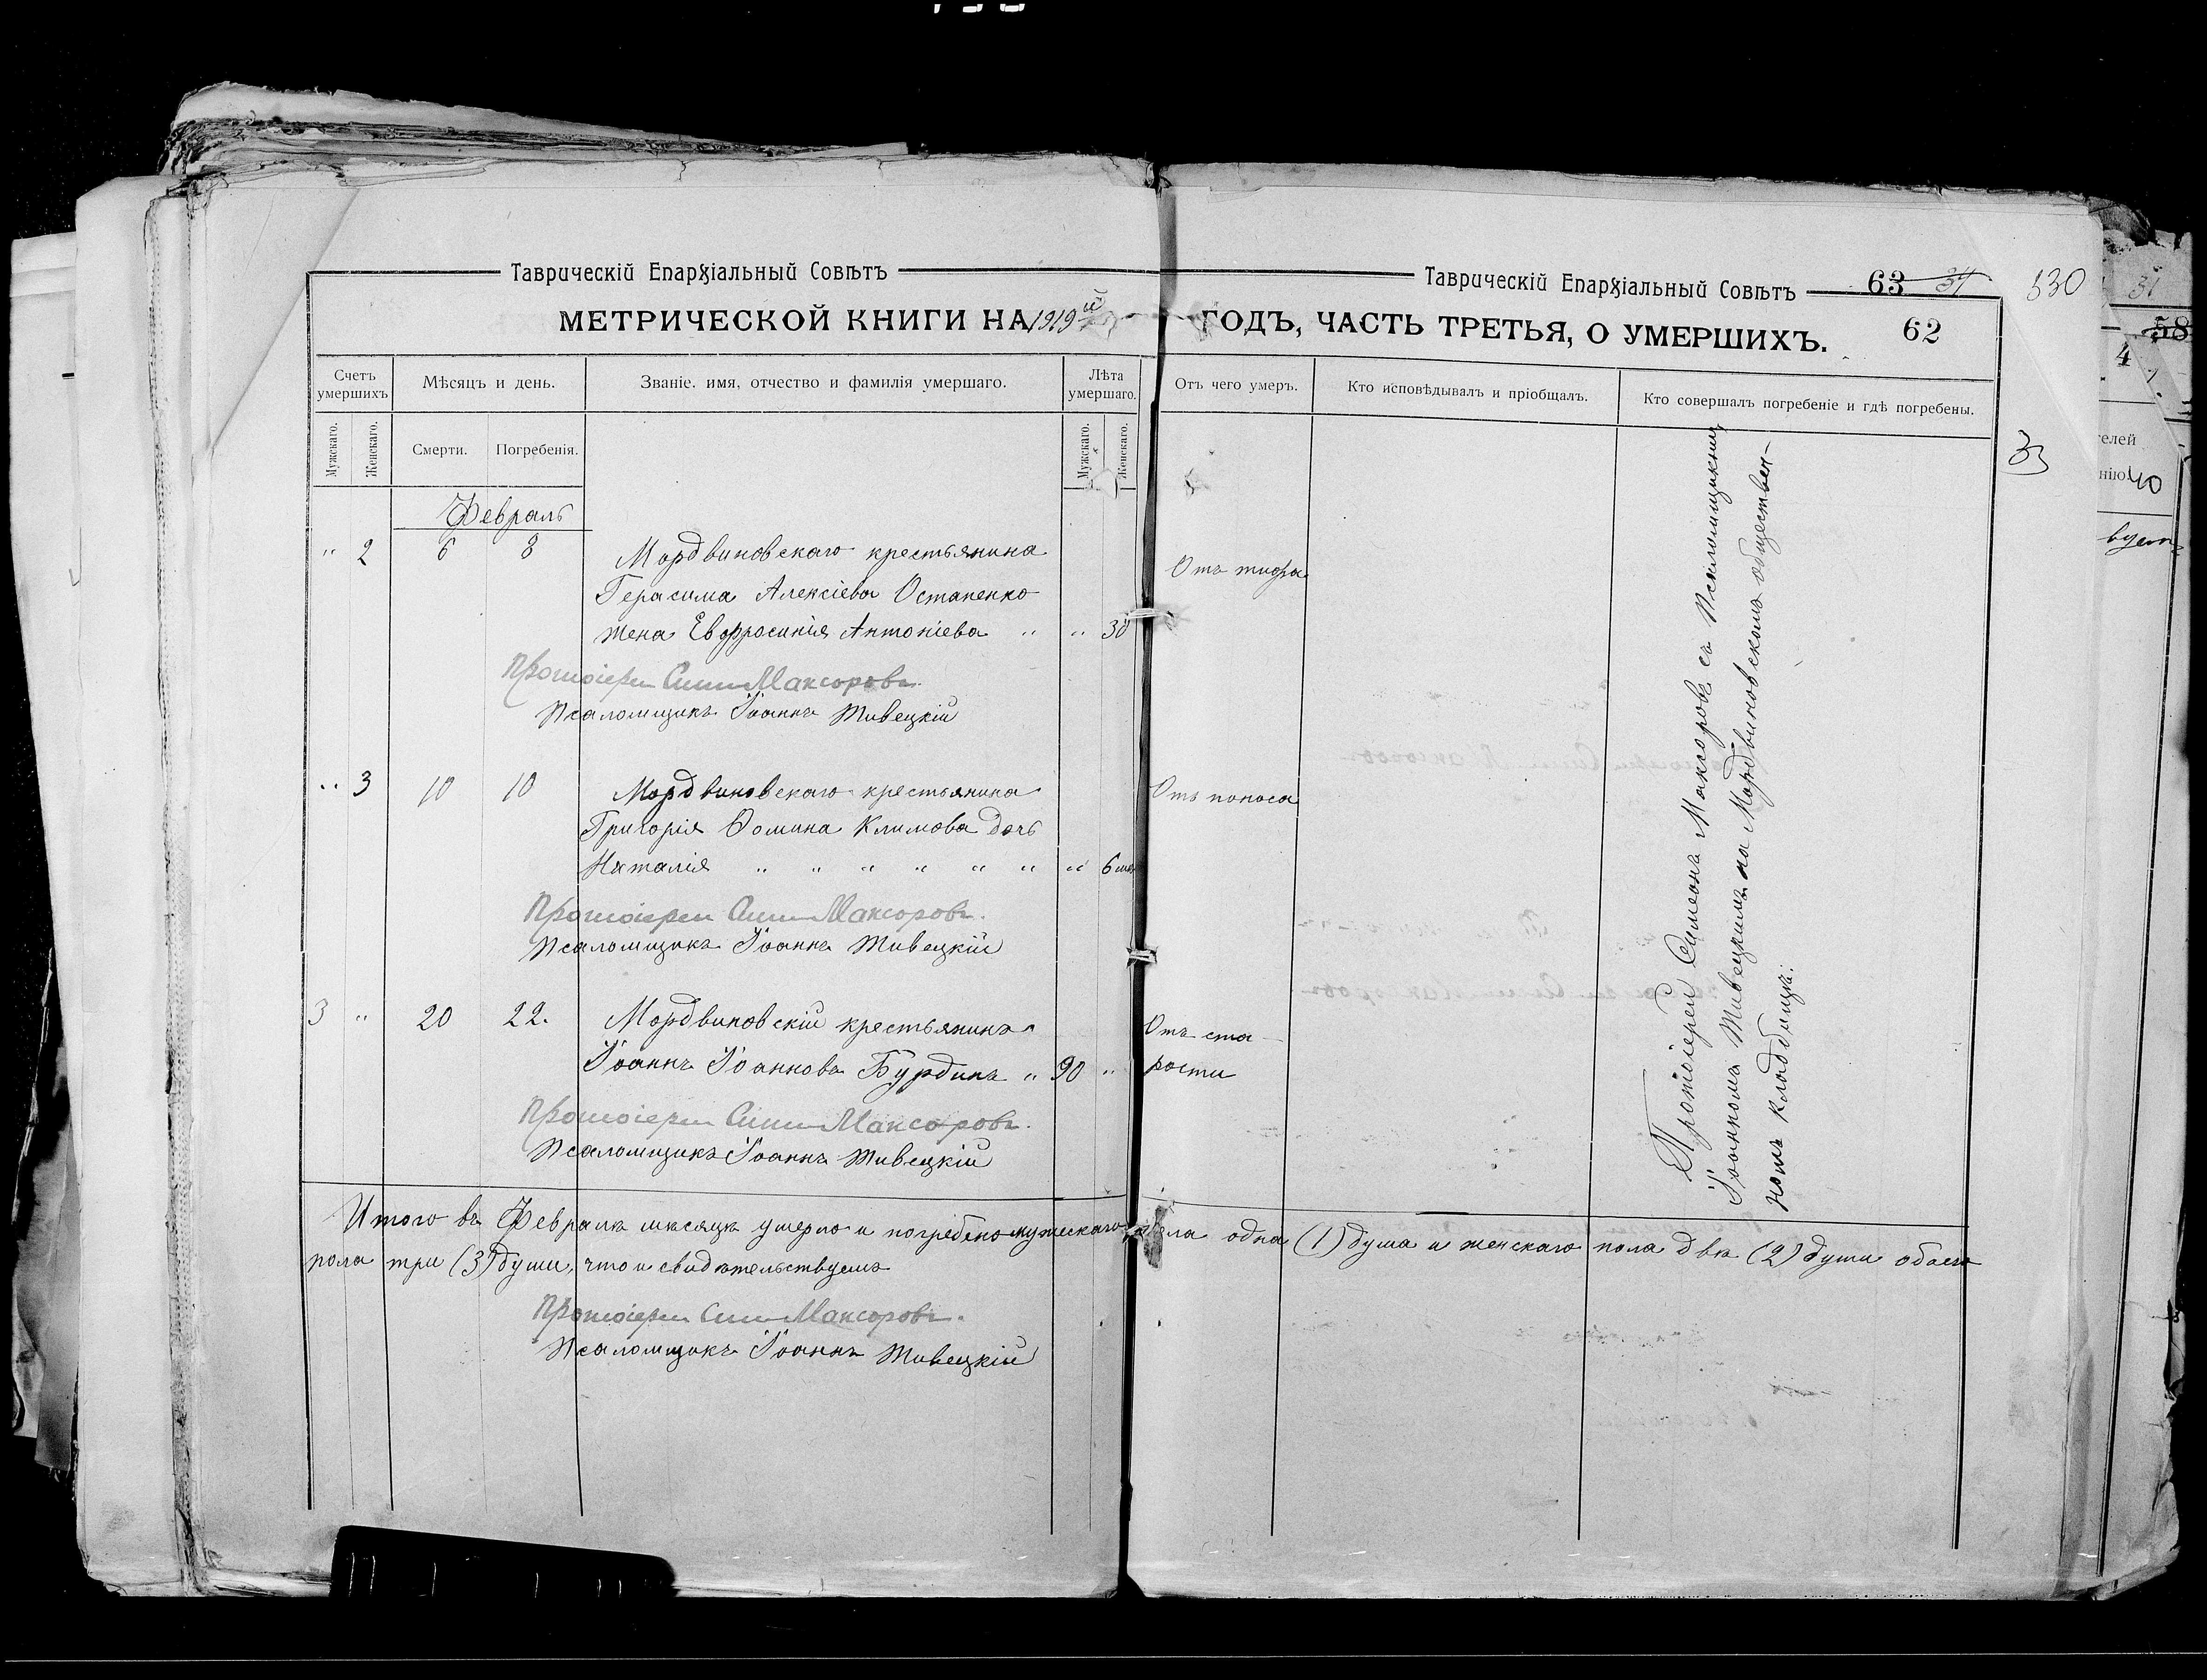 Таврическій Епархіальный Совѣтъ
МЕТРИЧЕСКОЙ КНИГИ НА 1919й
Счетъ умершихъ
Мѣсяцъ и день.
Званіе, имя, отчество и фамилія умершаго.
Лѣта умершаго.
Мужскаго.
Женскаго.
Смерти.
Погребенія.
Мужскаго.
Женскаго.
Февраль
" 2 6 8 Мордвиновскаго крестьянина
Герасима Алексіева Остапенко
жена Евфросинія Антоніева " " 30
Протоіерей Сим Максоровъ.
Псаломщикъ Іоаннъ Живецкій
" 3 10 10 Мордвиновскаго крестьянина
Григорія Ѳомина Климова дочь
Наталія " " " " " " " 6 мѣс
Протоіерей Сим Максоровъ.
Псаломщикъ Іоаннъ Живецкій
3 " 20 22. Мордвиновскій крестьянинъ
Іоаннъ Іоанновъ Бурдинъ " 90 "
Протоіерей Сим Максоровъ.
Псаломщикъ Іоаннъ Живецкій
Таврическій Епархіальный Совѣтъ
63 31
530
ГОДЪ, ЧАСТЬ ТРЕТЬЯ, О УМЕРШИХЪ.
62
Отъ чего умеръ.
Кто исповѣдывалъ и пріобщалъ.
Кто совершалъ погребеніе и гдѣ погребены.
33
Отъ тифа
Отъ поноса
Отъ ста-
рости
Протоіерей Симеонъ Максоровъ съ Псаломщикомъ
Іоанномъ Живецкимъ на Мордвиновскомъ обществен-
номъ кладбищѣ.
Итого въ Февралѣ мѣсяцѣ умерло и погребено мужескаго пола одна (1) душа и женскаго пола двѣ (2) души обоего
пола три (3) души, что и свидѣтельствуемъ
Протоіерей Сим Максоровъ.
Псаломщикъ Іоаннъ Живецкій
31
58
4
телей
нію
40